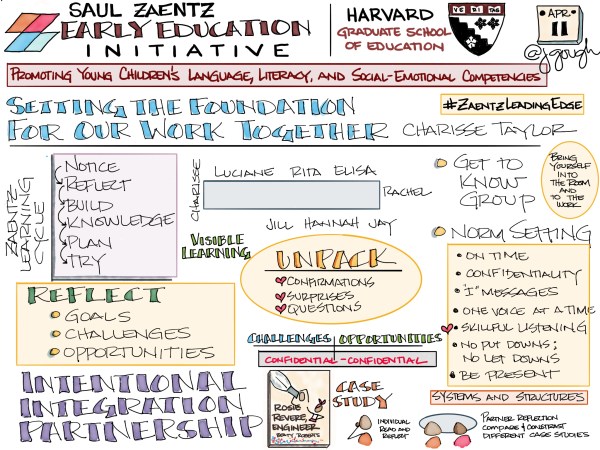 SAUL ZAENTZ
EARLY EDUCATION
INITIATIVE
HARVARD
GRADUATE SCHOOL
OF EDUCATION
VE RI TAS
APR
11
@jgough
PROMOTING YOUNG CHILDREN'S LANGUAGE, LITERACY, AND SOCIAL-EMOTIONAL COMPETENCIES
SETTING THE FOUNDATION
FOR OUR WORK TOGETHER
CHARISSE TAYLOR
#ZAENTZLEADINGEDGE
ZAENTZ
LEARNING
CYCLE
NOTICE
REFLECT
BUILD
KNOWLEDGE
PLAN
TRY
CHARISSE
LUCIANE RITA ELISA
RACHEL
JILL HANNAH JAY
VISIBLE
LEARNING
UNPACK
CONFIRMATIONS
SURPRISES
QUESTIONS
GET TO
KNOW
GROUP
BRING
YOURSELF
INTO
THE ROOM
AND
TO THE
WORK
NORM SETTING
• ON TIME
• CONFIDENTIALITY
• "I" MESSAGES
• ONE VOICE AT A TIME
• SKILLFUL LISTENING
• NO PUT DOWNS;
NO LET DOWNS
• BE PRESENT
REFLECT
GOALS
CHALLENGES
OPPORTUNITIES
CHALLENGES OPPORTUNITIES
CONFIDENTIAL-CONFIDENTIAL
INTENTIONAL
INTEGRATION
PARTNERSHIP
ROSIE
REVERE,
ENGINEER
CASE
STUDY
SYSTEMS AND STRUCTURES
INDIVIDUAL
READ AND
REFLECT
PARTNER REFLECTION
COMPARE & CONTRAST
DIFFERENT CASE STUDIES